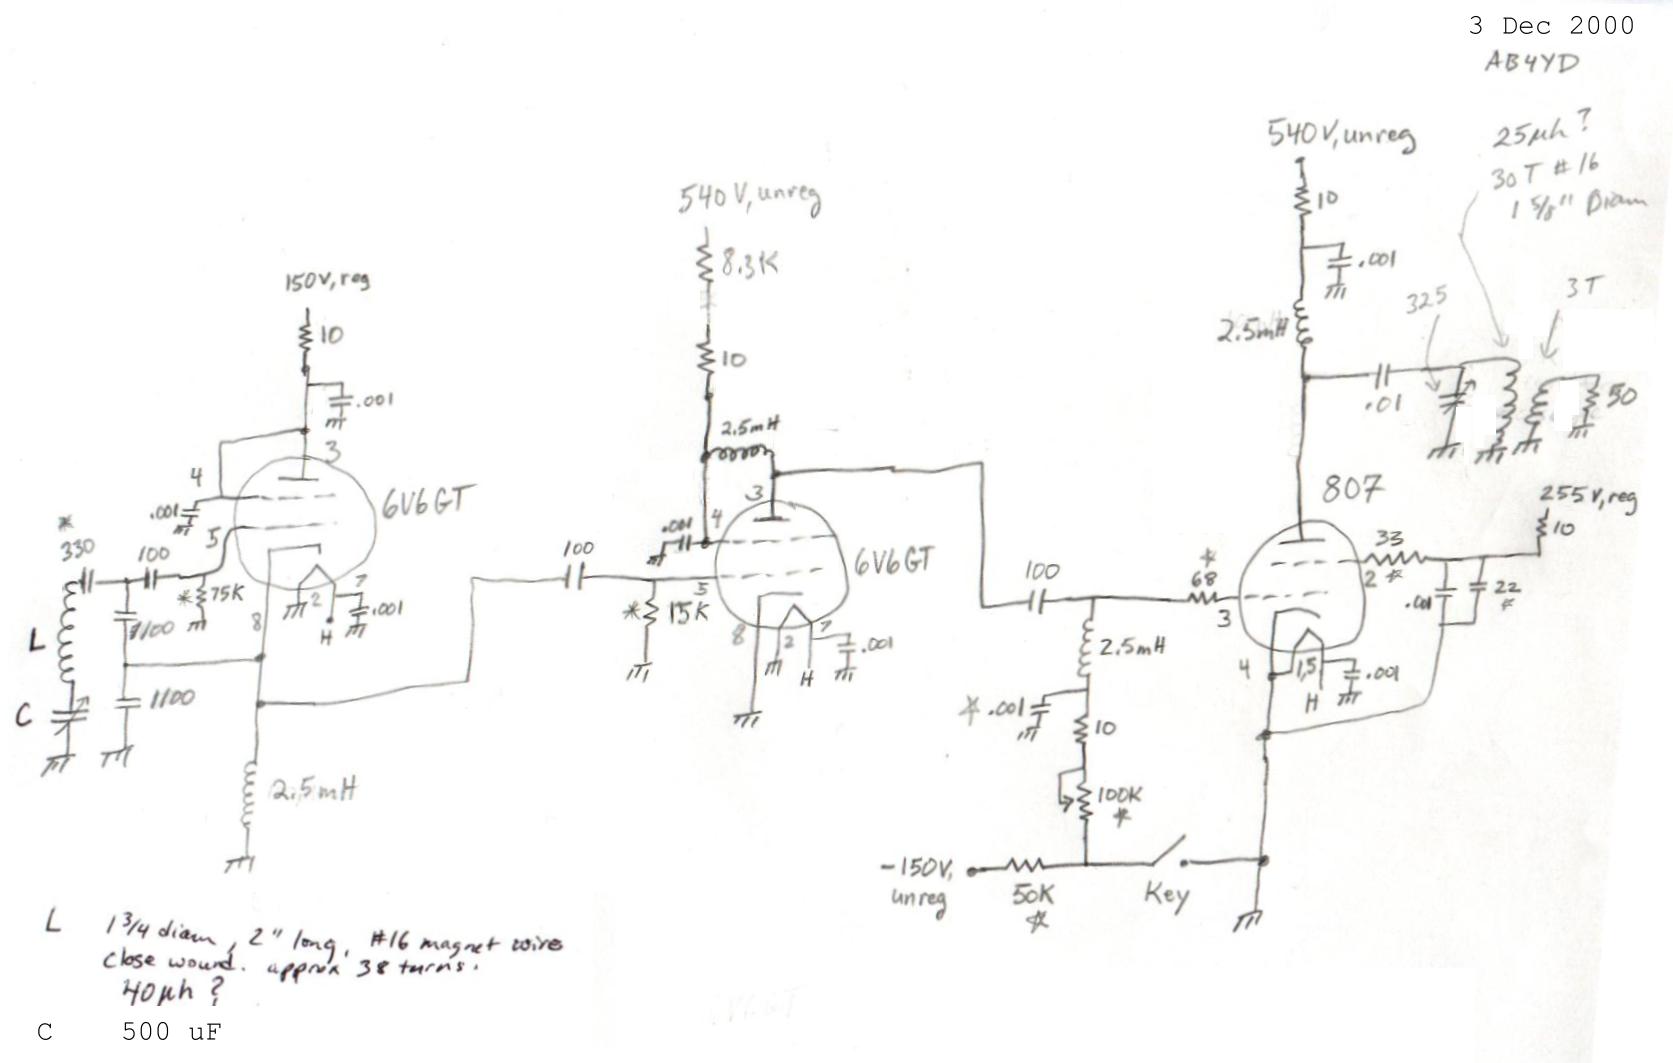 3 Dec 2000
AB4YD
540V, unreg
25µh?
30T #16
1 5/8" Diam
10
.001
2.5mH
325
3T
.01
50
540V, unreg
8.3K
10
2.5mH
150V, reg
10
.001
3
4
6V6GT
.001
5
*
330
100
*75K
1100
8
2
7
.001
H
L
C
1100
2.5mH
100
.001
4
3
6V6GT
5
*
15K
8
2
7
.001
H
807
255V, reg
10
100
*
68
3
33
2 *
.001
22
*
2.5mH
4
1,5
.001
H
* .001
10
100K
*
-150V,
unreg
50K
*
Key
L 1 3/4 diam, 2" long, #16 magnet wire
close wound. approx 38 turns.
40µh?
C 500 uF
6V6GT